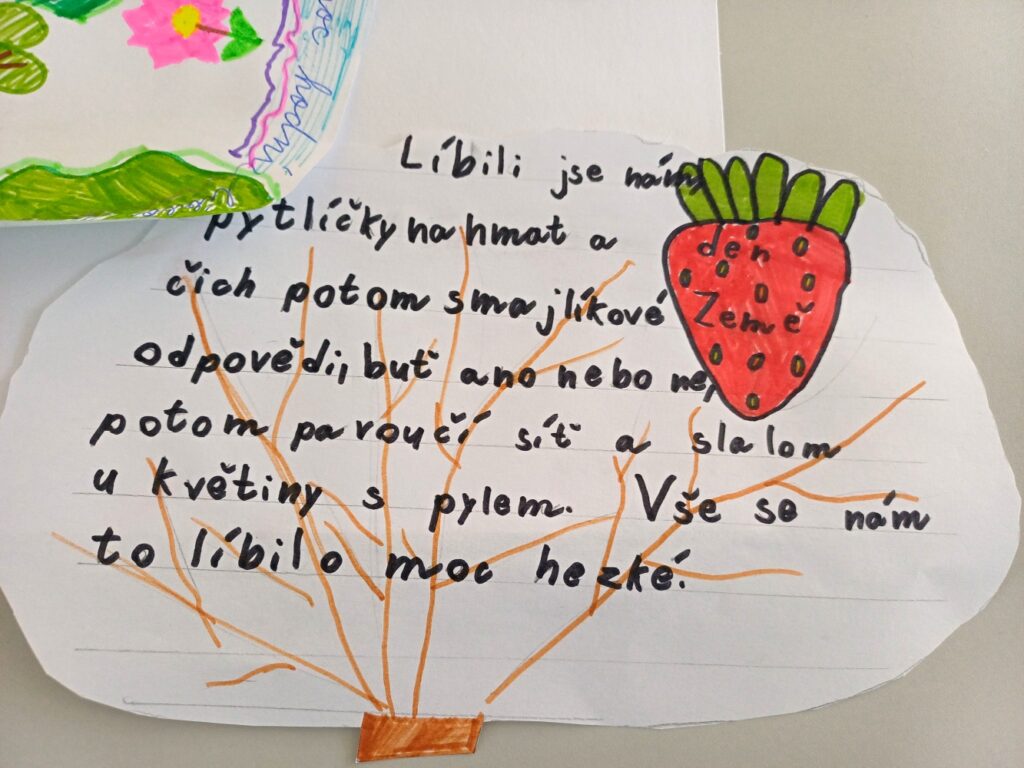 moc hodní
Líbili jse nám
pytlíčky na hmat a
čich potom smajlíkové
odpovědi, buť ano nebo ne,
potom paroučí síť a slalom
u květiny s pylem. Vše se nám
to líbilo moc hezké.
den
Země